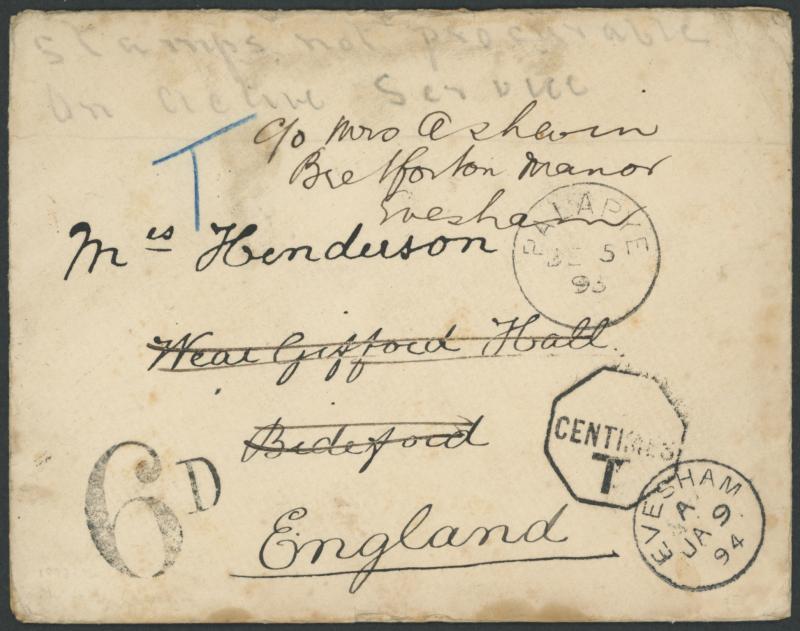 Stamps not procurable
on active Service
T
c/o Mrs Ashwin
Bretforton Manor
Evesham
PALAPYE
DE 5
93
Mrs Henderson
Wear Gifford Hall
Bideford
England
6D
CENTIMES
T
EVESHAM
A
JA 9
94